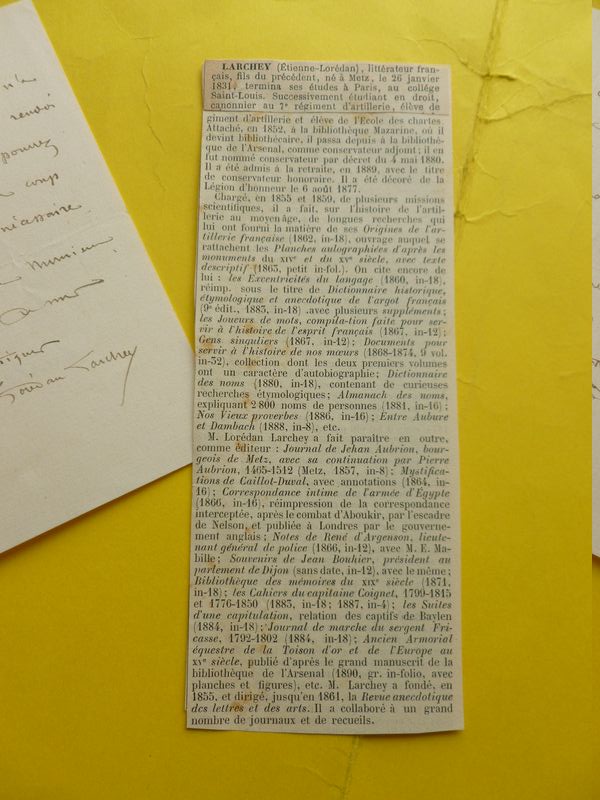 n'a
renvoi
pouvez
coup
nécessaire
Monsieur
Lorédan Larchey
LARCHEY (Étienne-Lorédan), littérateur fran-
çais, fils du précédent, né à Metz, le 26 janvier
1831, termina ses études à Paris, au collège
Saint-Louis. Successivement étudiant en droit,
canonnier au 7e régiment d'artillerie, élève de
giment d'artillerie et élève de l'Ecole des chartes.
Attaché, en 1852, à la bibliothèque Mazarine, où il
devint bibliothécaire, il passa depuis à la bibliothè-
que de l'Arsenal, comme conservateur adjoint; il en
fut nommé conservateur par décret du 4 mai 1880.
Il a été admis à la retraite, en 1889, avec le titre
de conservateur honoraire. Il a été décoré de la
Légion d'honneur le 6 août 1877.
Chargé, en 1855 et 1859, de plusieurs missions
scientifiques, il a fait, sur l'histoire de l'artil-
lerie au moyen âge, de longues recherches qui
lui ont fourni la matière de ses Origines de l'ar-
tillerie française (1862, in-18), ouvrage auquel se
rattachent les Planches autographiées d'après les
monuments du XIVe et du XVe siècle, avec texte
descriptif (1863, petit in-fol.). On cite encore de
lui : les Excentricités du langage (1860, in-18),
réimp. sous le titre de Dictionnaire historique,
étymologique et anecdotique de l'argot français
(9e édit., 1883, in-18) avec plusieurs suppléments;
les Joueurs de mots, compilation faite pour ser-
vir à l'histoire de l'esprit français (1867, in-12);
Gens singuliers (1867, in-12); Documents pour
servir à l'histoire de nos mœurs (1868-1874, 9 vol.
in-32), collection dont les deux premiers volumes
ont un caractère d'autobiographie; Dictionnaire
des noms (1880, in-18), contenant de curieuses
recherches étymologiques; Almanach des noms,
expliquant 2 800 noms de personnes (1881, in-16);
Nos Vieux proverbes (1886, in-16); Entre Aubure
et Dambach (1888, in-8), etc.
M. Lorédan Larchey a fait paraître en outre,
comme éditeur : Journal de Jehan Aubrion, bour-
geois de Metz, avec sa continuation par Pierre
Aubrion, 1465-1512 (Metz, 1857, in-8); Mystifica-
tions de Caillot-Duval, avec annotations (1864, in-
16); Correspondance intime de l'armée d'Égypte
(1866, in-16), réimpression de la correspondance
interceptée, après le combat d'Aboukir, par l'escadre
de Nelson, et publiée à Londres par le gouverne-
ment anglais; Notes de René d'Argenson, lieute-
nant général de police (1866, in-12), avec M. E. Ma-
bille; Souvenirs de Jean Bouhier, président au
parlement de Dijon (sans date, in-12), avec le même;
Bibliothèque des mémoires du XIXe siècle (1871,
in-18); les Cahiers du capitaine Coignet, 1799-1815
et 1776-1850 (1883, in-18; 1887, in-4); les Suites
d'une capitulation, relation des captifs de Baylen
(1884, in-18); Journal de marche du sergent Fri-
casse, 1792-1802 (1884, in-18); Ancien Armorial
équestre de la Toison d'or et de l'Europe au
XVe siècle, publié d'après le grand manuscrit de la
bibliothèque de l'Arsenal (1890, gr. in-folio, avec
planches et figures), etc. M. Larchey a fondé, en
1855, et dirigé, jusqu'en 1861, la Revue anecdotique
des lettres et des arts. Il a collaboré à un grand
nombre de journaux et de recueils.